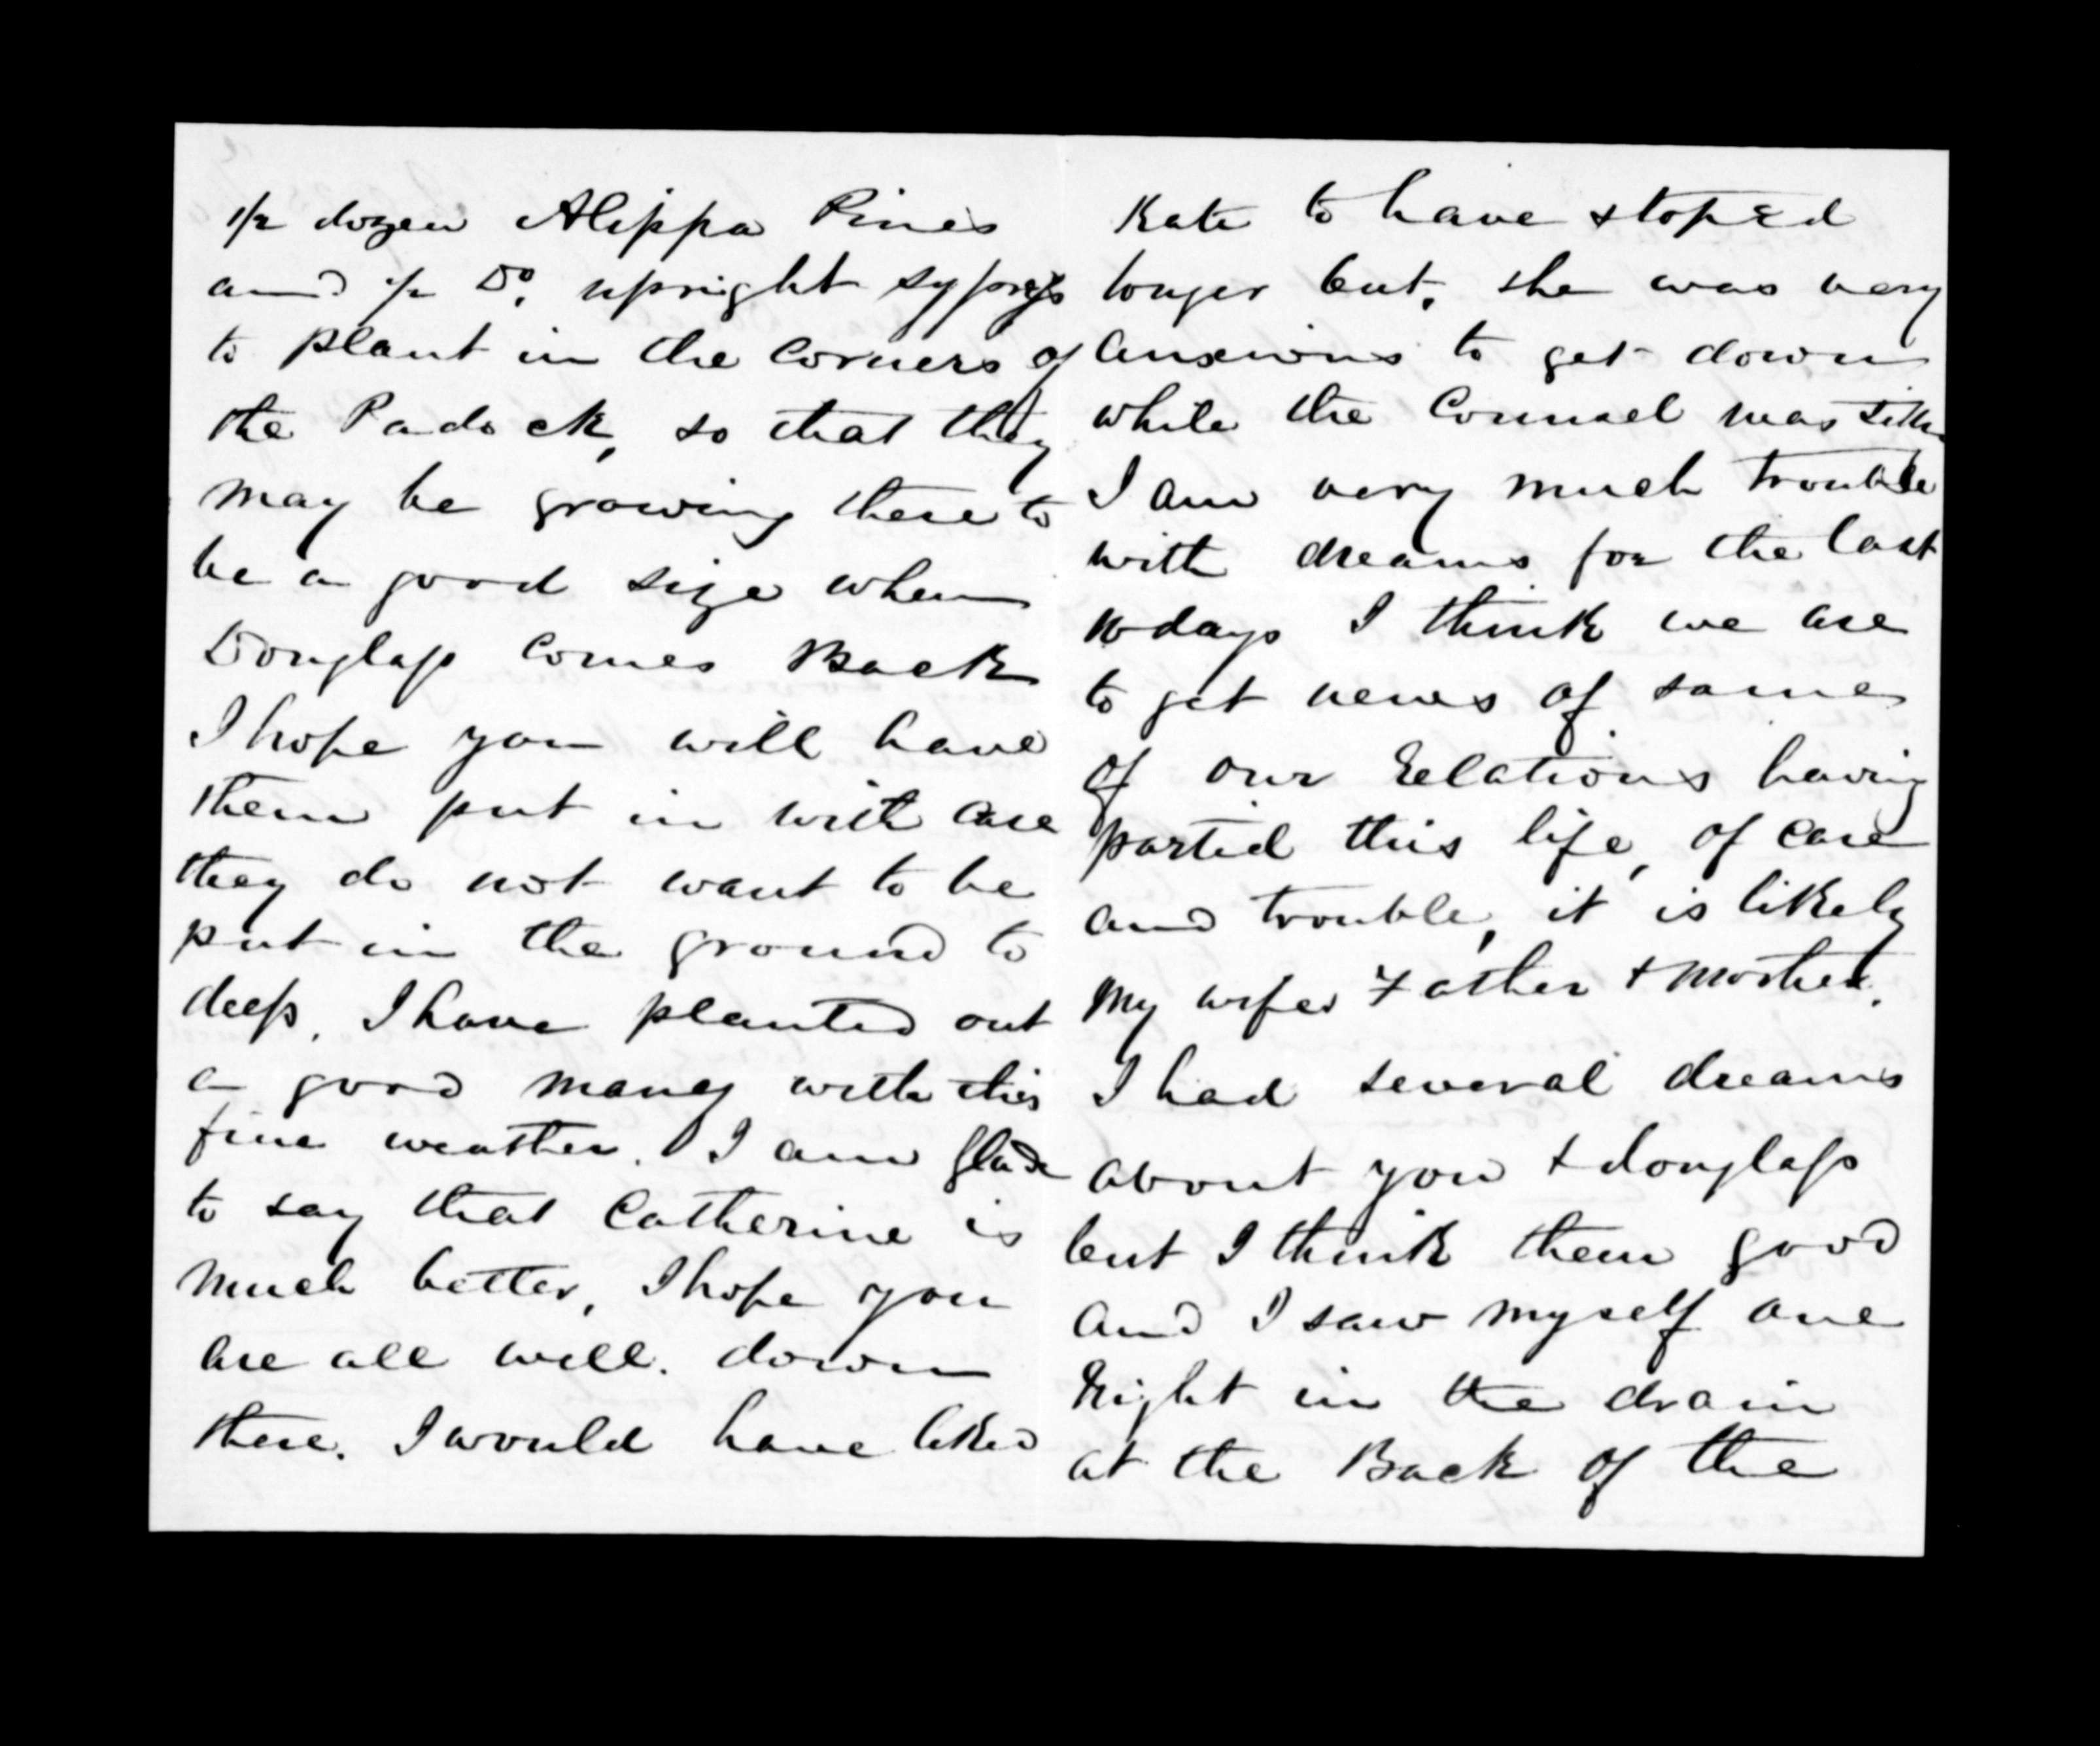 1/2 dozen Alippa Pines
and 1/2 Do. upright sypress
to plant in the corners of
the Padock, so that they
may be growing there to
be a good size when
Douglass comes Back
I hope you will have
them put in with care
they do not want to be
put in the ground to
deep. I have planted out
a good many with this
fine weather. I am glad
to say that Catherine is
much better, I hope you
are all well. down
there. I would have liked
Kate to have stoped
longer but, she was very
anxious to get down
while the Counsel was
I am very much trouble
with dreams for the last
10 days I think we are
to get news of some
of our relations having
parted this life, of care
and trouble, it is likely
my wifes Father & mother.
I had several dreams
about you & douglass
but I think them good
and I saw myself one
night in the drain
at the Back of the